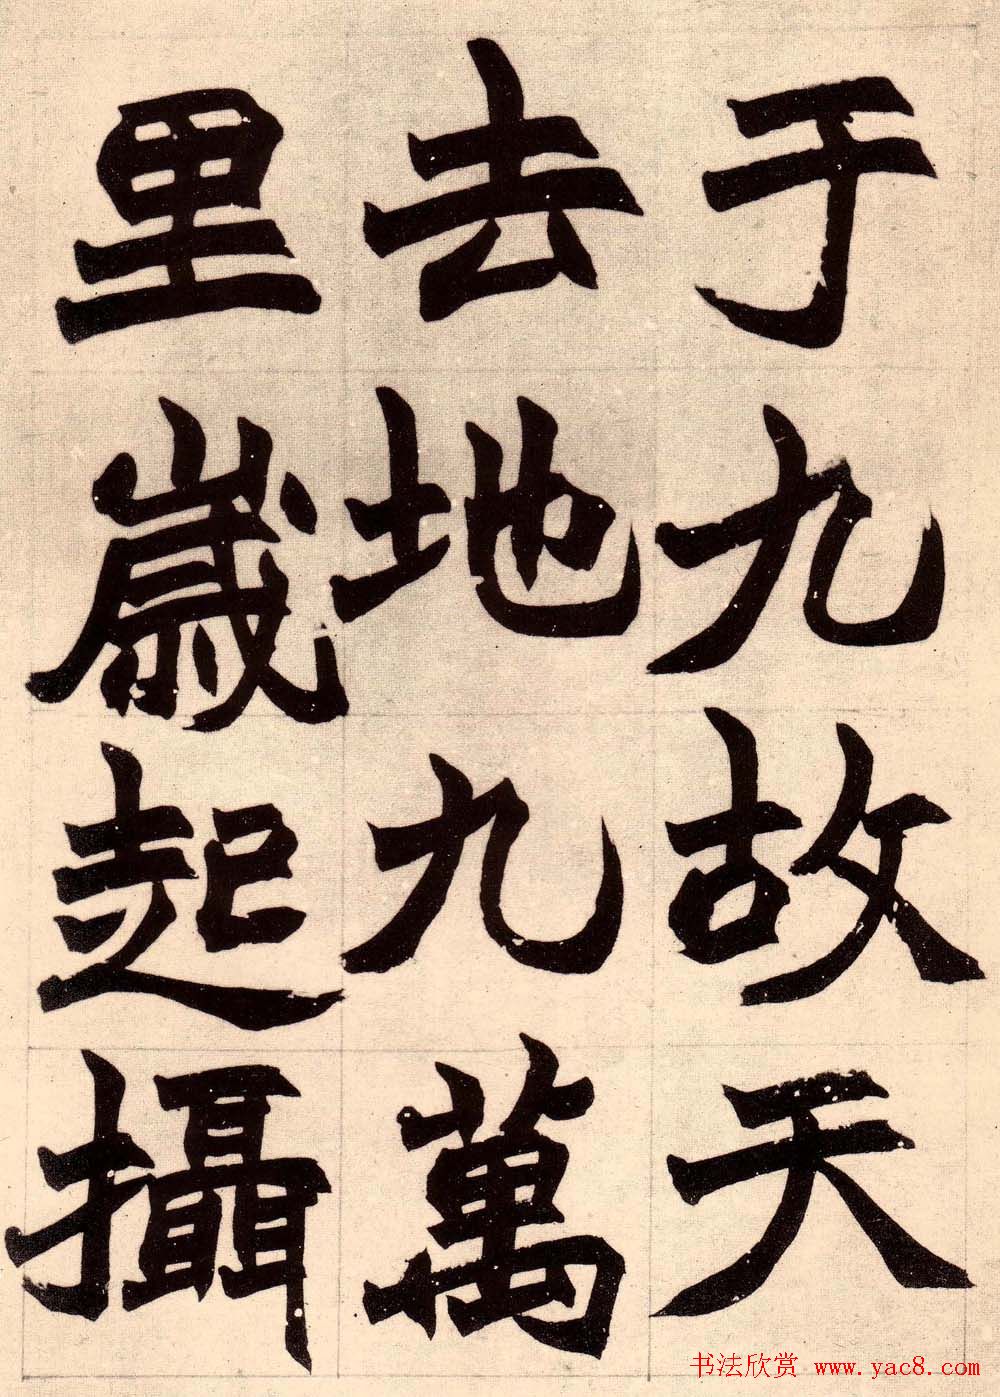 于九故天
去地九萬
里歲起攝
书法欣赏 www.yac8.com